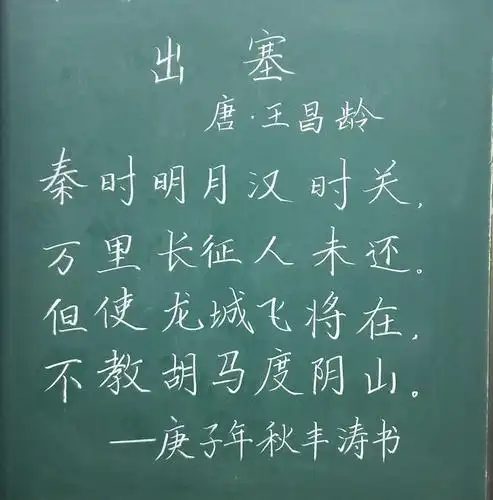 出塞
唐·王昌龄
秦时明月汉时关，
万里长征人未还。
但使龙城飞将在，
不教胡马度阴山。
—庚子年秋丰涛书